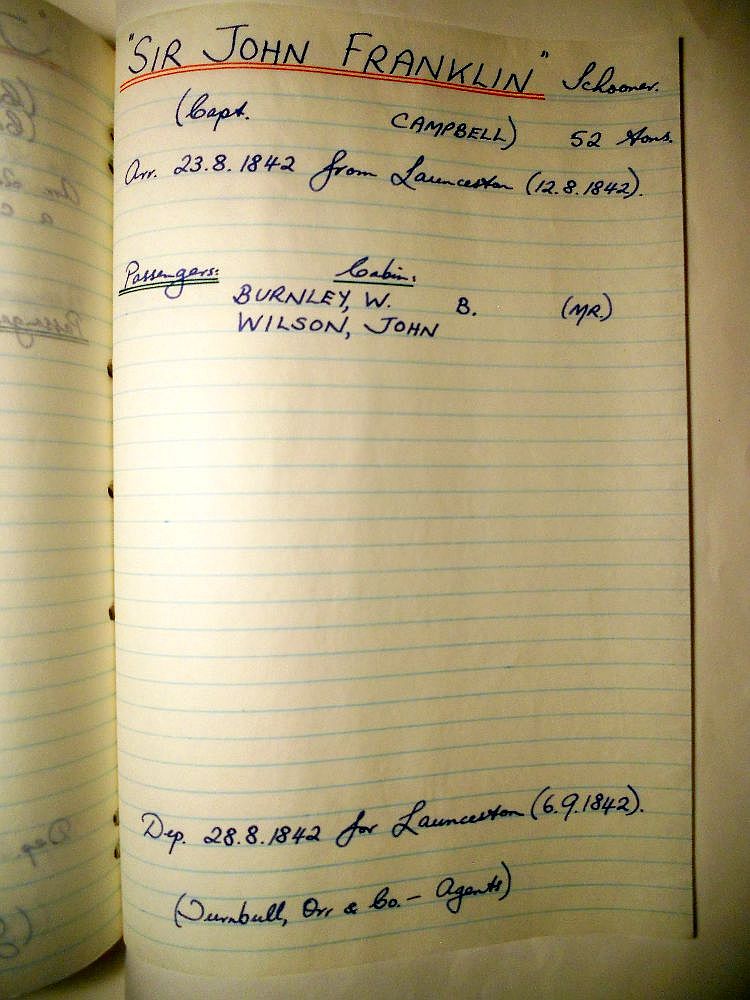 "SIR JOHN FRANKLIN" Schooner.
(Capt. CAMPBELL) 52 tons.
Arr. 23.8.1842 from Launceston (12.8.1842).
Passengers: Cabin:
BURNLEY, W. B. (MR.)
WILSON, JOHN
Dep. 28.8.1842 for Launceston (6.9.1842).
(Turnbull, Orr & Co. - Agents)